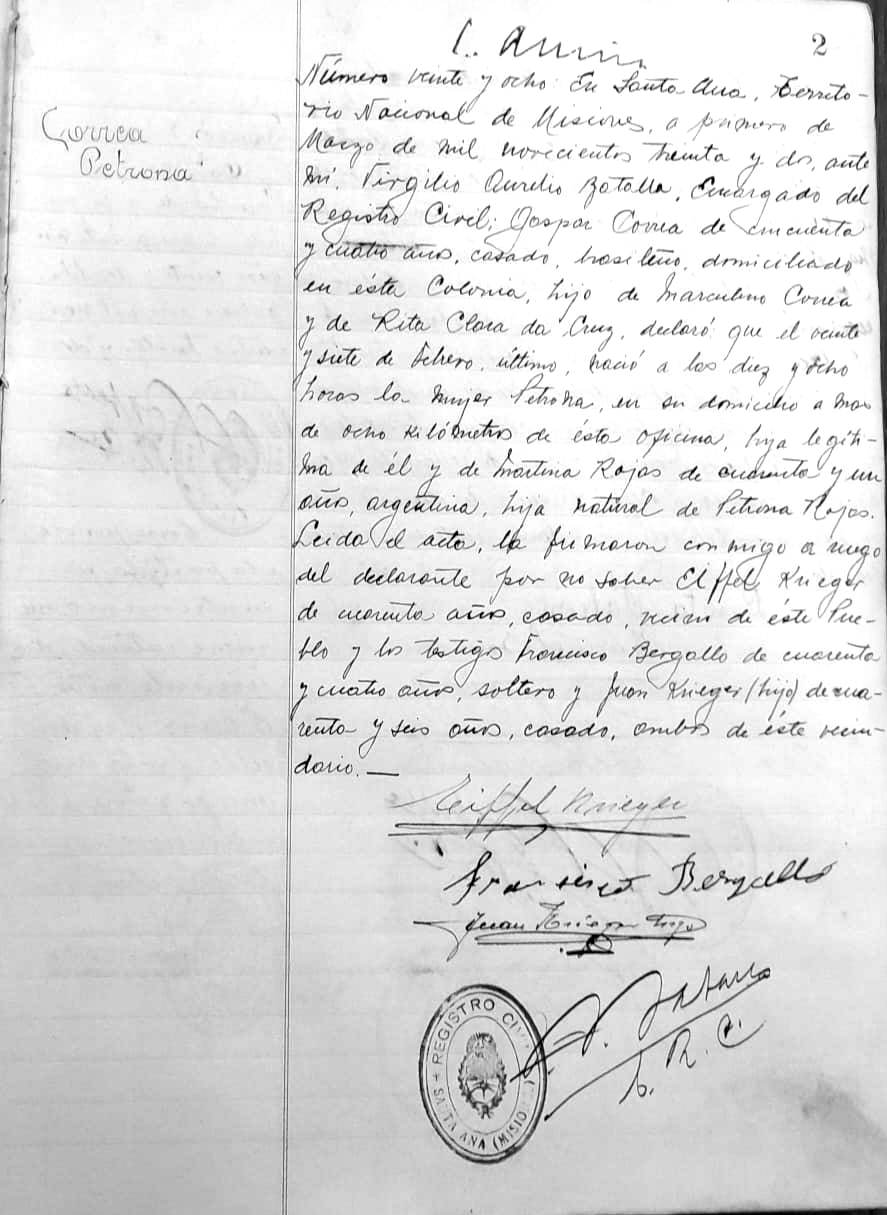 2
Correa
Petrona
Número veinte y ocho En Santa Ana, Territo-
rio Nacional de Misiones, a primero de
Marzo de mil novecientos treinta y dos, ante
mí, Virgilio Aurelio Batalla, Encargado del
Registro Civil; Gaspar Correa de cincuenta
y cuatro años, casado, brasileño, domiciliado
en ésta Colonia, hijo de Marculino Correa
y de Rita Clara da Cruz, declaró: que el veinte
y siete de Febrero, último, nació a las diez y ocho
horas la mujer Petrona, en su domicilio a mas
de ocho kilómetros de ésta oficina, hija legíti-
ma de él y de Martina Rojas de cuarenta y un
años, argentina, hija natural de Petrona Rojas.
Leida el acta, la firmaron conmigo a ruego
del declarante por no saber Eiffel Krieger
de cuarenta años, casado, vecino de éste Pue-
blo y los testigos Francisco Bergallo de cuarenta
y cuatro años, soltero y Juan Krieger (hijo) de cua-
renta y seis años, casado, ambos de éste vecin-
dario.—
Eiffel Krieger
Francisco Bergallo
Juan Krieger hijo
V. Batalla
E. R. C.
REGISTRO CIVIL
SANTA ANA (MISIONES)